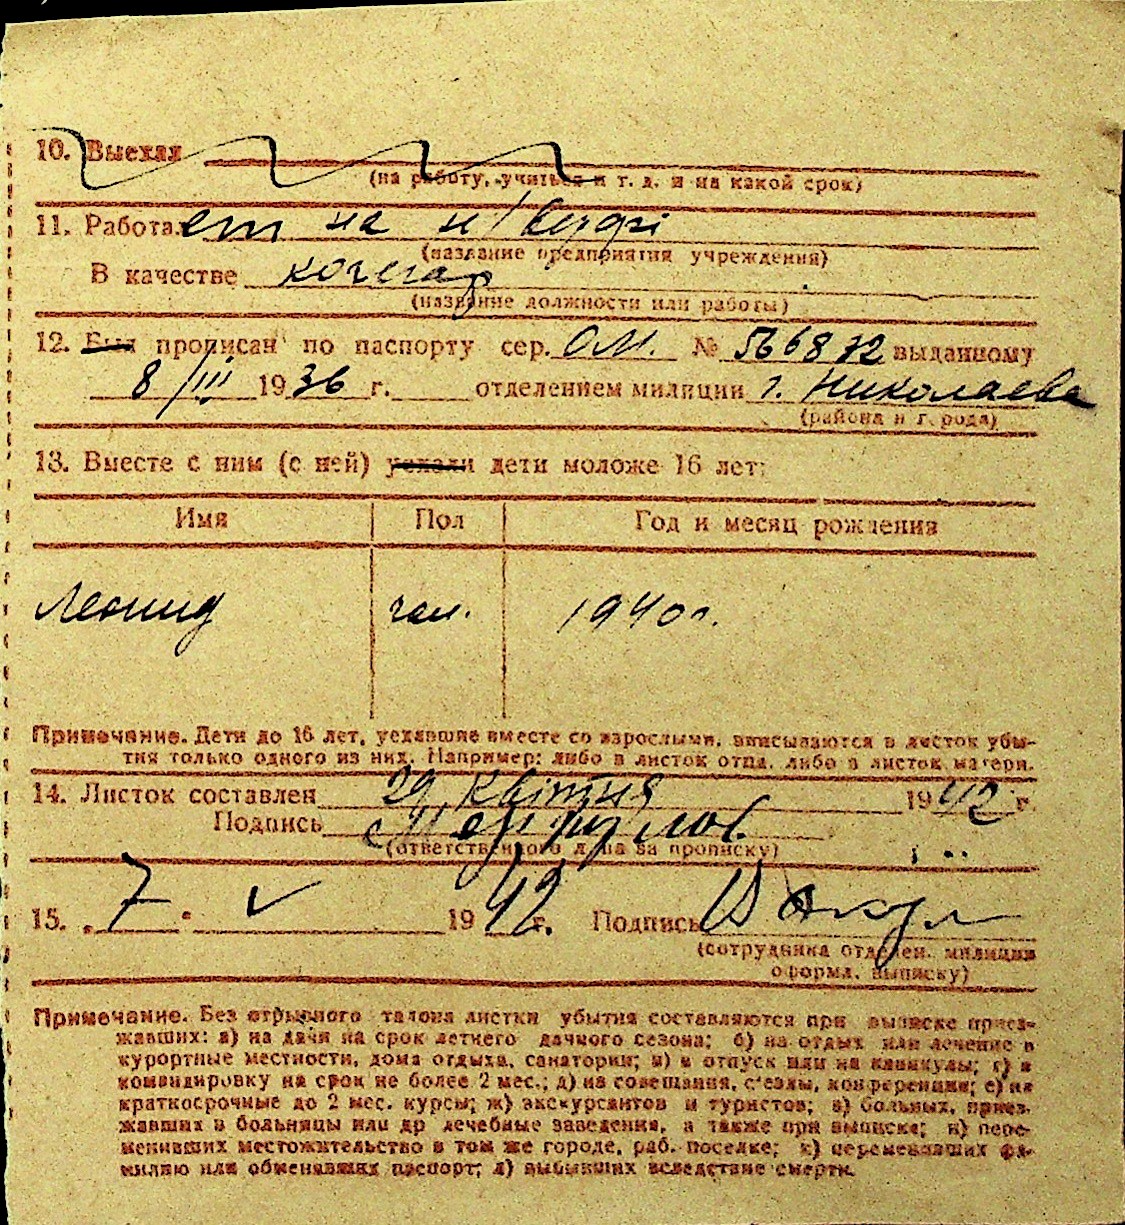 10. Выехал
(на работу, учиться и т. д. и на какой срок)
11. Работает на н/верфі
(название предприятия учреждения)
В качестве кочегар
(название должности или работы)
12. Был прописан по паспорту сер. ОМ. № 566872 выданному
8/III 1936 г. отделением милиции г. Николаева
(района и города)
13. Вместе с ним (с ней) уехали дети моложе 16 лет:
Имя Пол Год и месяц рождения
Леонид чол. 1940 г.
Примечание. Дети до 16 лет, уехавшие вместе со взрослыми, вписываются в листок убы-
тия только одного из них. Например: либо в листок отца, либо в листок матери.
14. Листок составлен 29 Квітня 1942 г.
Подпись
(ответственного лица за прописку)
15. 7 V 1942 г. Подпись
(сотрудника отделен. милиции
оформл. выписку)
Примечание. Без отрывного талона листки убытия составляются при выписке приез-
жавших: а) на дачи на срок летнего дачного сезона; б) на отдых или лечение в
курортные местности, дома отдыха, санатории; в) в отпуск или на каникулы; г) в
командировку на срок не более 2 мес.; д) на совещания, съезды, конференции; е) на
краткосрочные до 2 мес. курсы; ж) экскурсантов и туристов; з) больных, приез-
жавших в больницы или др лечебные заведения, а также при выписке; и) пере-
менивших местожительство в том же городе, раб. поселке; к) переменивших фа-
милию или обменявших паспорт; л) выбывших вследствие смерти.